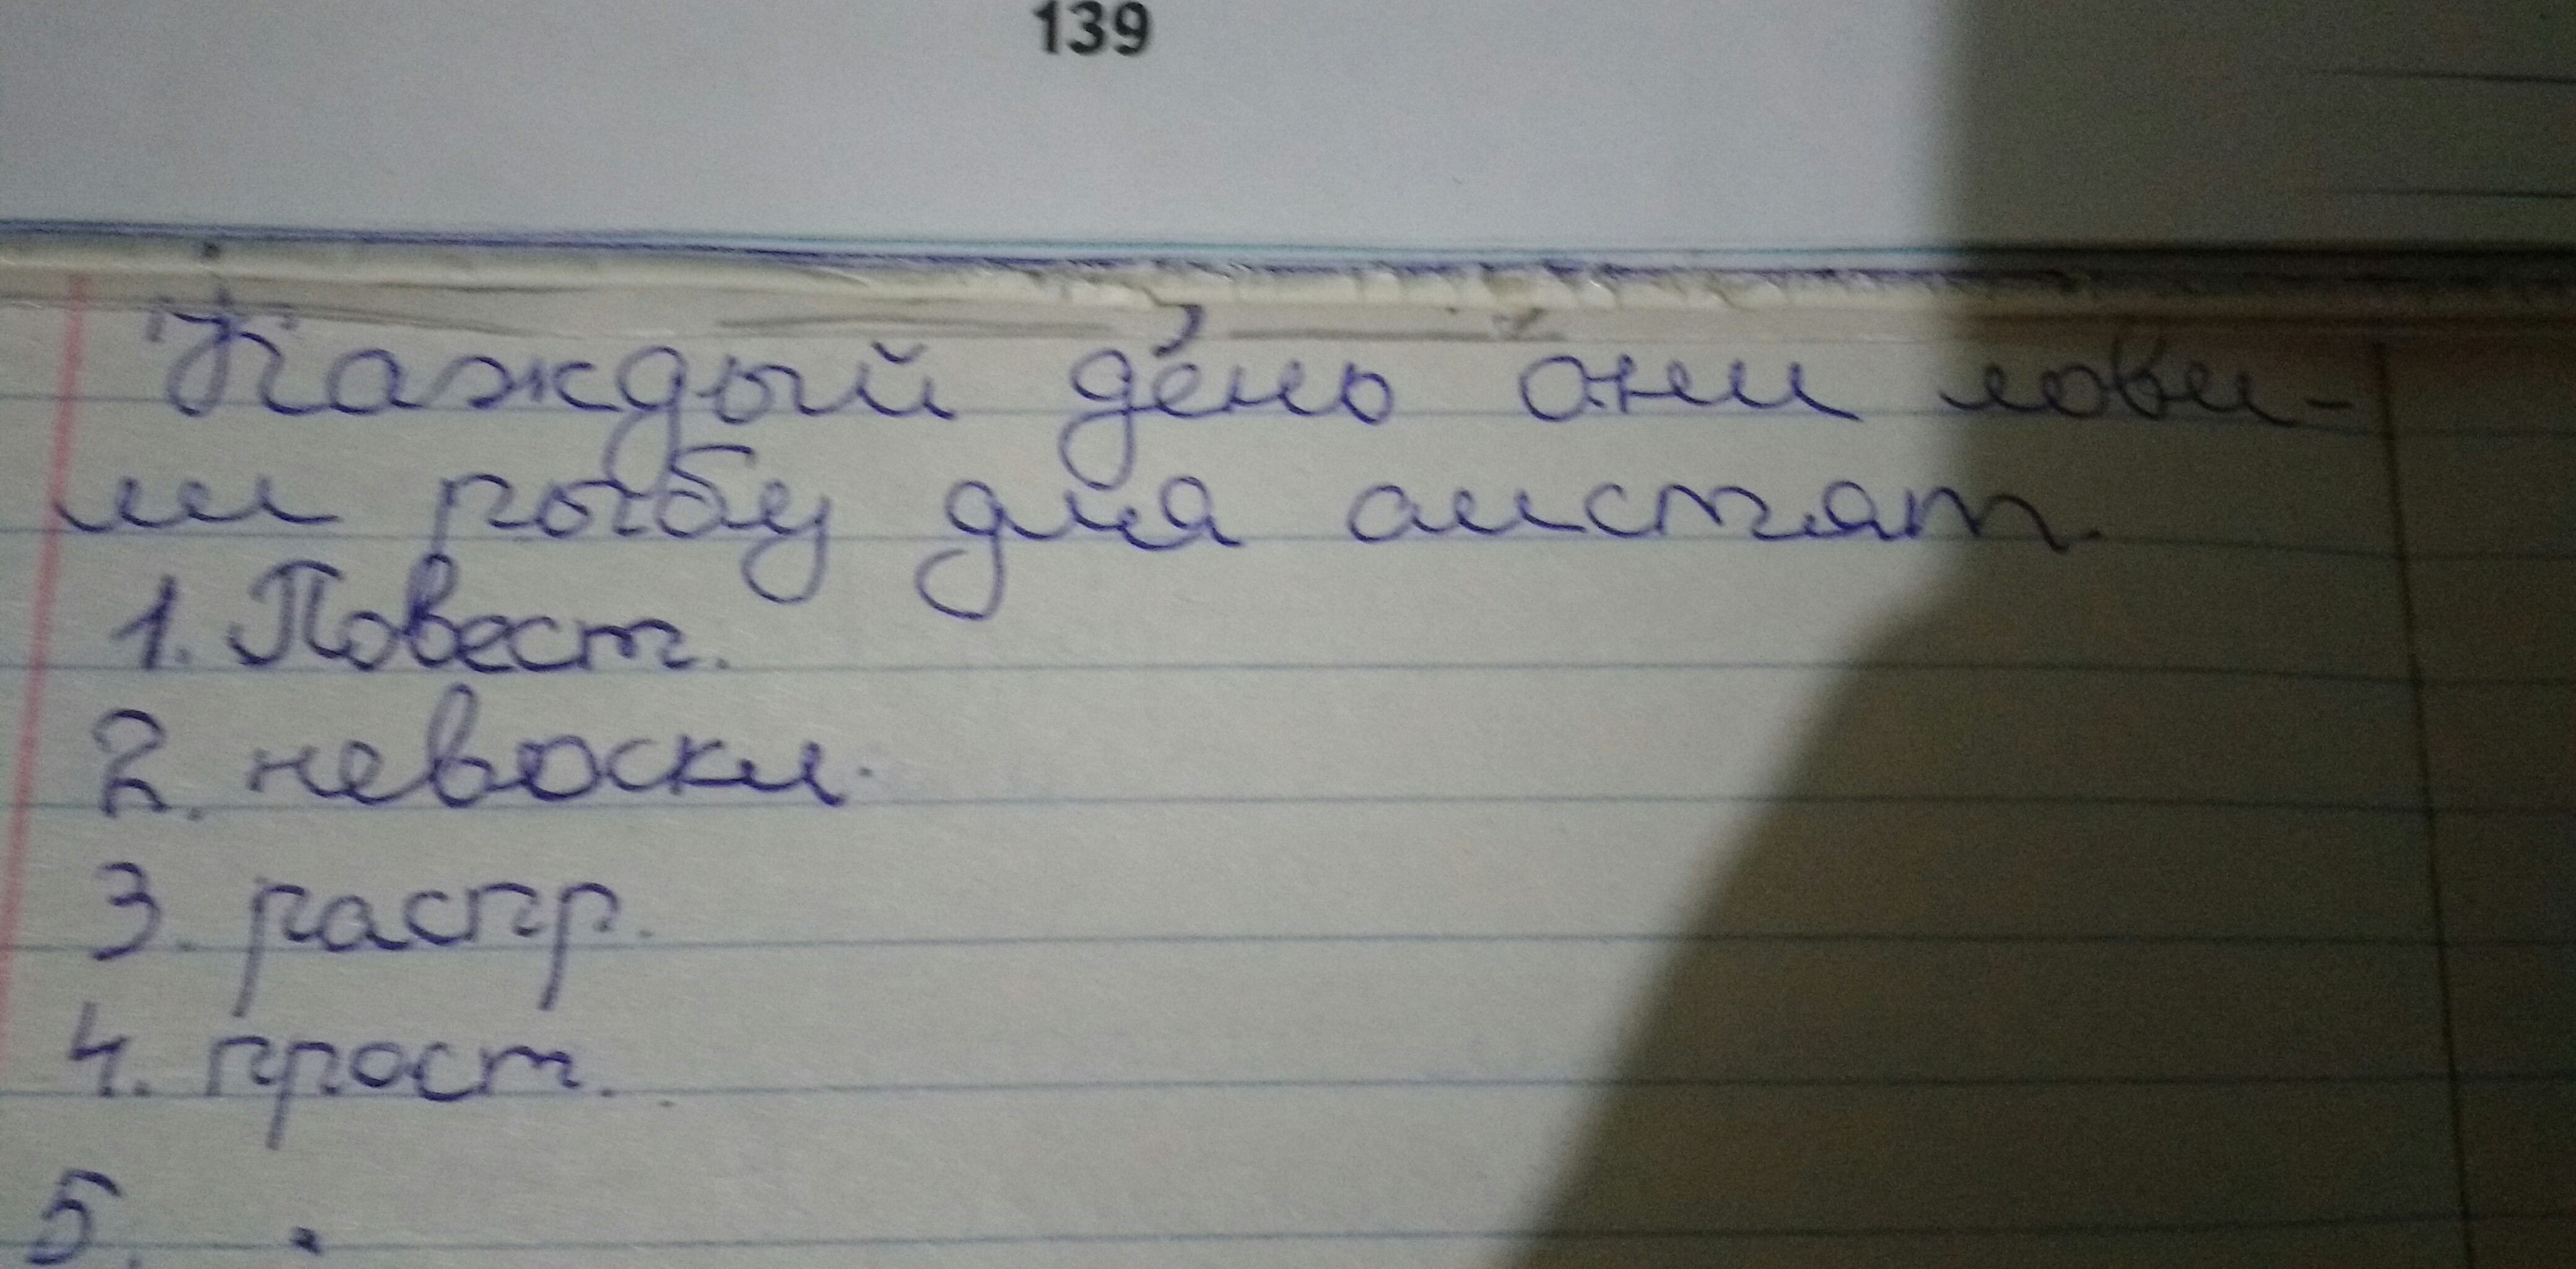 139
Каждый день они лови-
ли рыбу для аистят.
1. Повест.
2. невоскл.
3. распр.
4. прост.
5. .